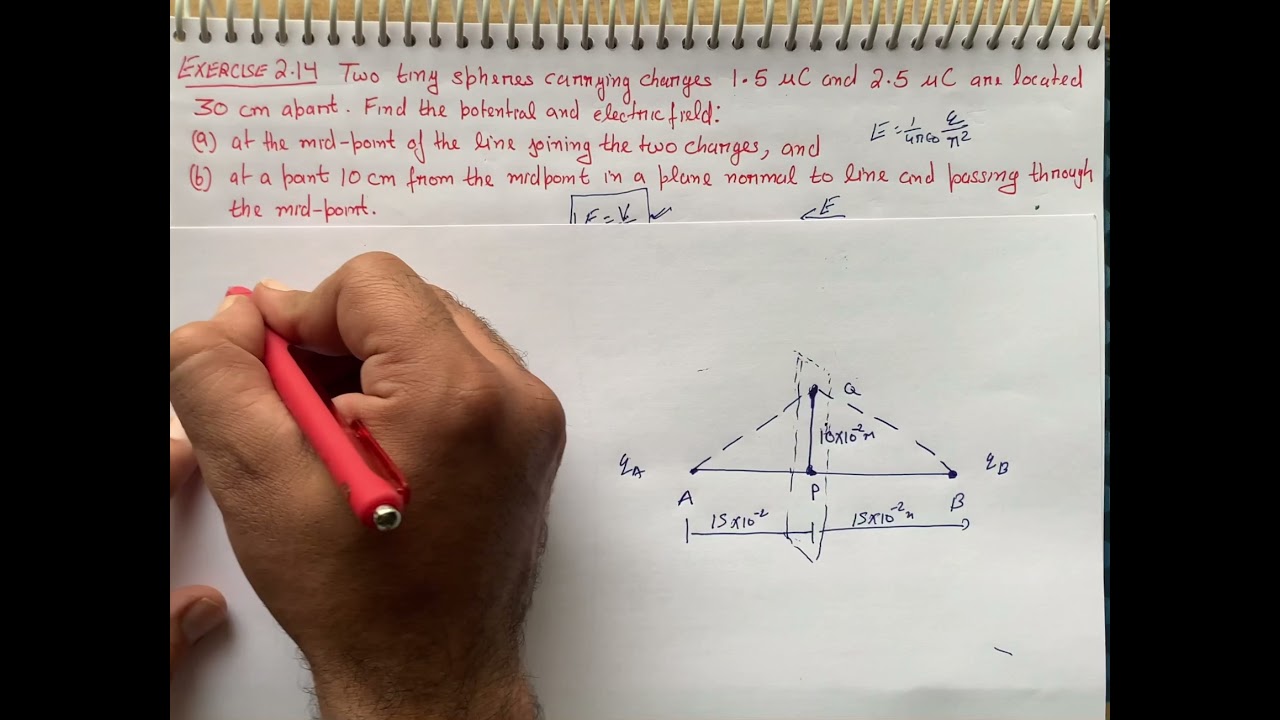 EXERCISE 2.14 Two tiny spheres carrying charges 1.5 μC and 2.5 μC are located
30 cm apart. Find the potential and electric field:
E = 1/4πε0 q/r²
(a) at the mid-point of the line joining the two charges, and
(b) at a point 10 cm from the midpoint in a plane normal to line and passing through
the mid-point.
E = V
E
Q
10×10⁻²m
qA
qB
A
P
B
15×10⁻²
15×10⁻²m